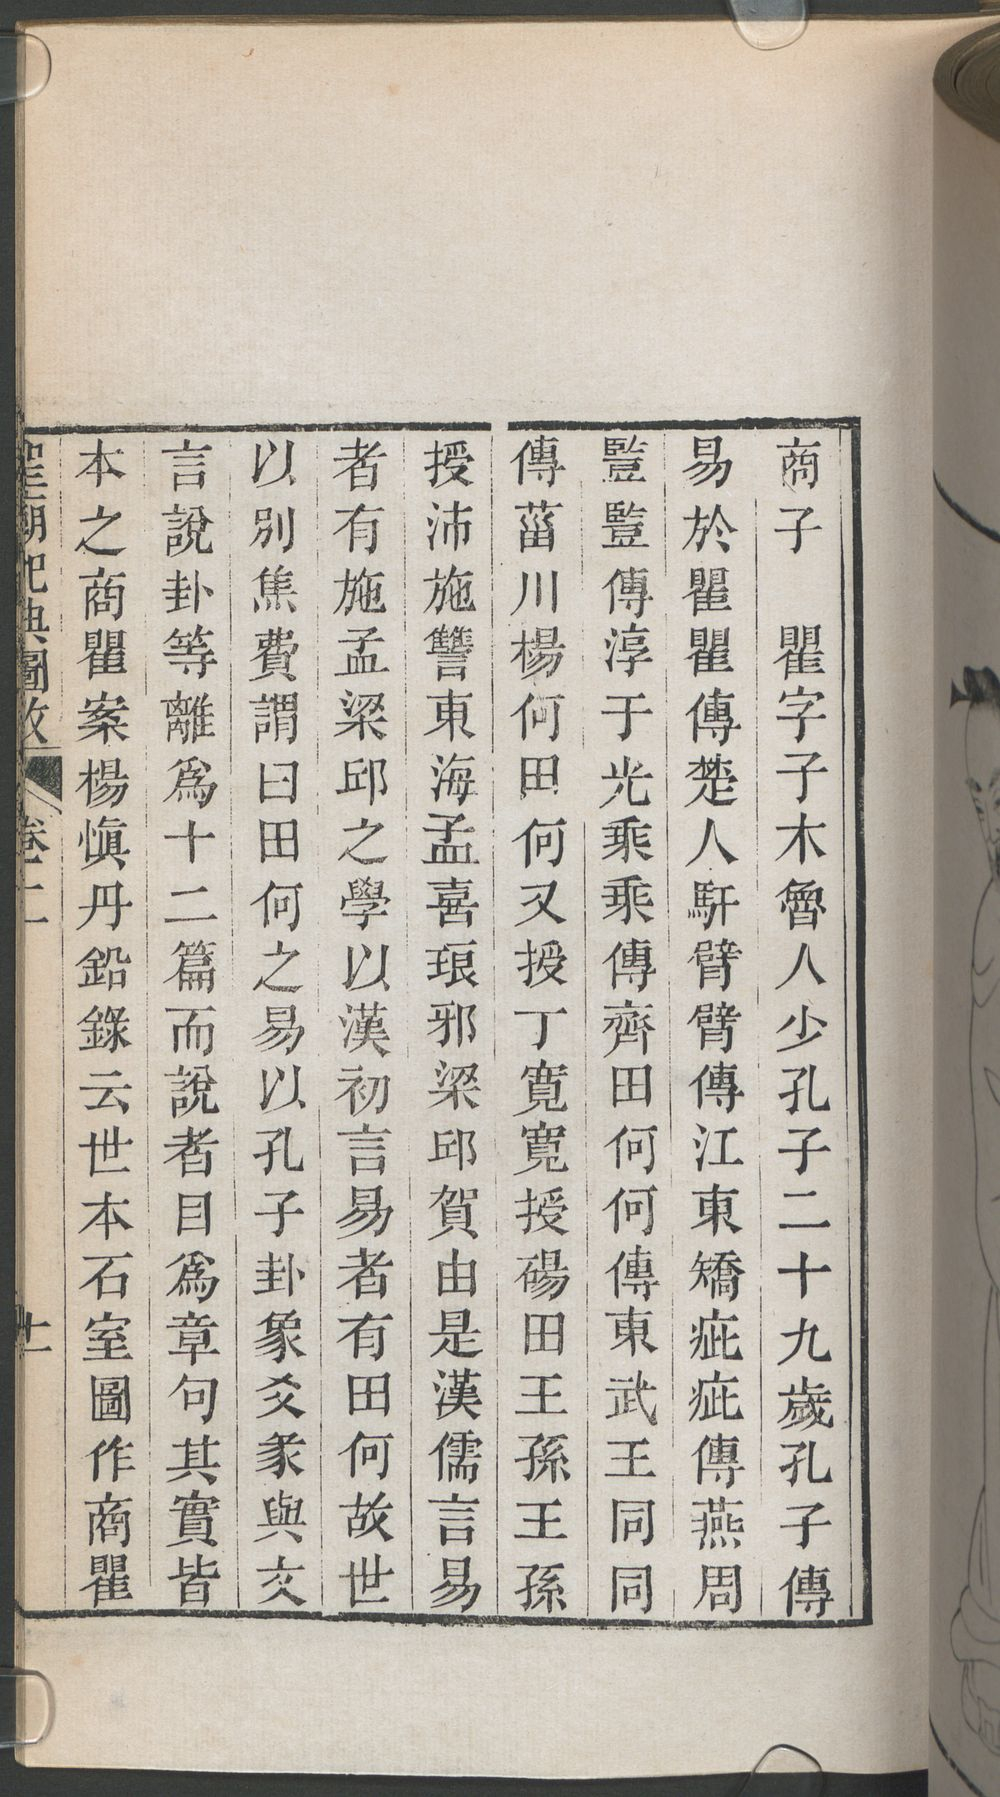 商子　瞿字子木魯人少孔子二十九歲孔子傳
易於瞿瞿傳楚人馯臂臂傳江東矯疵疵傳燕周
豎豎傳淳于光乘乘傳齊田何何傳東武王同同
傳菑川楊何田何又授丁寬寬授碭田王孫王孫
授沛施讐東海孟喜琅邪梁邱賀由是漢儒言易
者有施孟梁邱之學以漢初言易者有田何故世
以別焦費謂曰田何之易以孔子卦象爻彖與文
言說卦等離爲十二篇而說者目爲章句其實皆
本之商瞿案楊慎丹鉛錄云世本石室圖作商瞿
聖朝祀典圖攷　卷二　十一